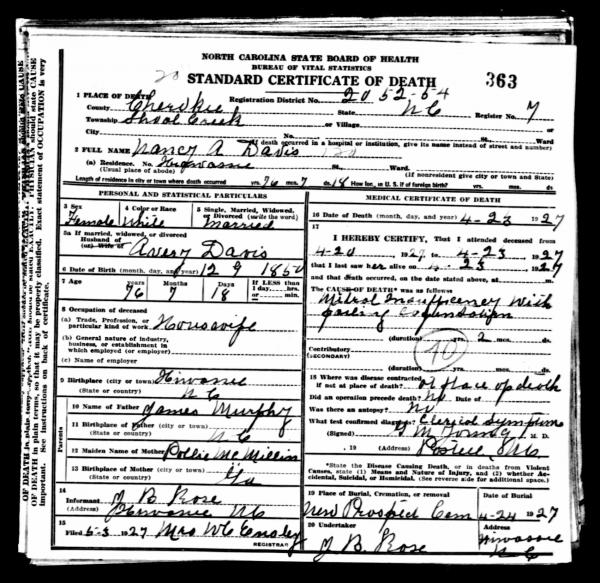 NORTH CAROLINA STATE BOARD OF HEALTH
BUREAU OF VITAL STATISTICS
20 STANDARD CERTIFICATE OF DEATH 363
1 PLACE OF DEATH Registration District No. 20 52-54
County Cherokee State N C Register No. 7
Township Shoal Creek or Village
City No. St. Ward
(If death occurred in a hospital or institution, give its name instead of street and number)
2 FULL NAME Nancy A Davis
(a) Residence. No. St. Ward.
(Usual place of abode) (If nonresident give city or town and State)
Length of residence in city or town where death occurred yrs. 76 mos. 7 ds. 18 How long in U. S. if of foreign birth? yrs. mos. ds.
PERSONAL AND STATISTICAL PARTICULARS
3 Sex 4 Color or Race 5 Single, Married, Widowed, or Divorced (write the word)
Female White Married
5a If married, widowed, or divorced
Husband of
(or) Wife of Avery Davis
6 Date of Birth (month, day, and year) 12 9 1850
7 Age years months days If LESS than
76 7 18 1 day, hrs.
or min.
8 Occupation of deceased
(a) Trade, Profession, or
particular kind of work Housewife
(b) General nature of industry,
business, or establishment in
which employed (or employer)
(c) Name of employer
9 Birthplace (city or town) Hiwassee
(State or country) N C
Parents
10 Name of Father James Murphy
11 Birthplace of Father (city or town)
(State or country) N C
12 Maiden Name of Mother Pollie McMillin
13 Birthplace of Mother (city or town)
(State or country) Ga
14
Informant J B Rose
(Address) Hiwassee N C
15
Filed 5-3 1927 Mrs W C Ensley
REGISTRAR
MEDICAL CERTIFICATE OF DEATH
16 Date of Death (month, day, and year) 4-23 1927
17
I HEREBY CERTIFY, That I attended deceased from
4-20 1927 to 4-23 1927
that I last saw her alive on 4 23 1927
and that death occurred, on the date stated above, at m.
The CAUSE OF DEATH* was as follows
Mitral Insufficency With
failing
(duration) yrs. 2 mos. ds.
Contributory 90
(SECONDARY)
(duration) yrs. mos. ds.
18 Where was disease contracted
if not at place of death? At place of death
Did an operation precede death? No Date of
Was there an autopsy? No
What test confirmed diagnosis? Clerical Symptoms
(Signed) M. D.
19 (Address) Postell N C
*State the Disease Causing Death, or in deaths from Violent
Causes, state (1) Means and Nature of Injury, and (2) whether Ac-
cidental, Suicidal, or Homicidal. (See reverse side for additional space)
19 Place of Burial, Cremation, or removal Date of Burial
New Prospect Cem 4-24 1927
20 Undertaker Address
J B Rose Hiwassee
N C